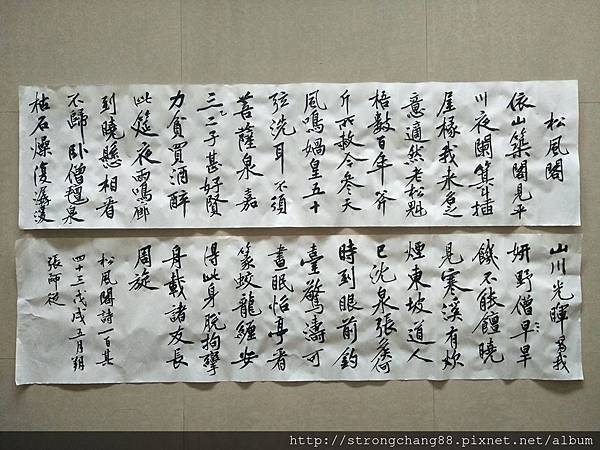 松風閣
依山築閣見平
川夜闌箕斗插
屋椽我來名之
意適然老松魁
梧數百年斧
斤所赦今參天
風鳴媧皇五十
弦洗耳不須
菩薩泉嘉
三二子甚好賢
力貧買酒醉
此筵夜雨鳴廊
到曉懸相看
不歸臥僧氈泉
枯石燥復潺湲
山川光暉為我
妍野僧早旱
饑不能饘曉
見寒溪有炊
煙東坡道人
已沈泉張侯何
時到眼前釣
臺驚濤可
晝眠怡亭看
篆蛟龍纏安
得此身脫拘攣
舟載諸友長
周旋
松風閣詩一百其
四十三戊戌五月朔
張師從
http://strongchang88.pixnet.net/album